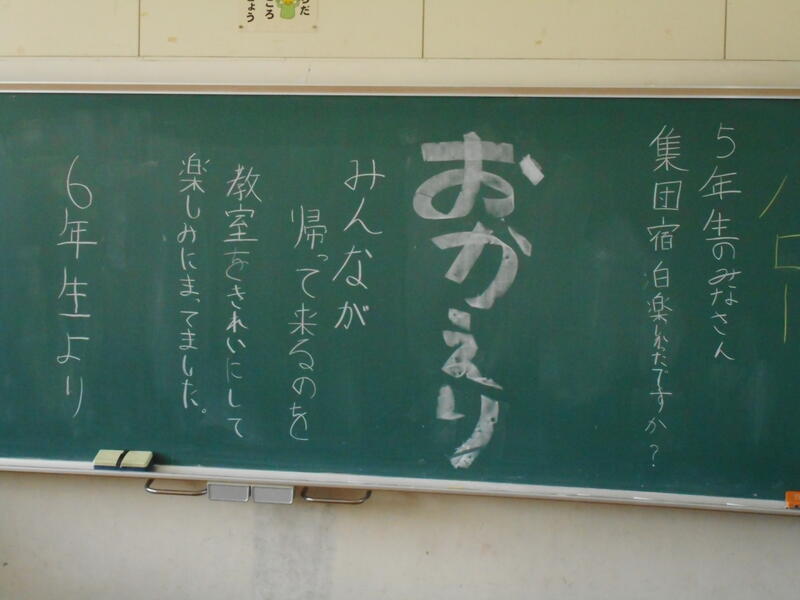 5年生のみなさん
集団宿泊楽しかったですか?
おかえり
みんなが
帰って来るのを
教室をきれいにして
楽しみにまってました。
6年生より